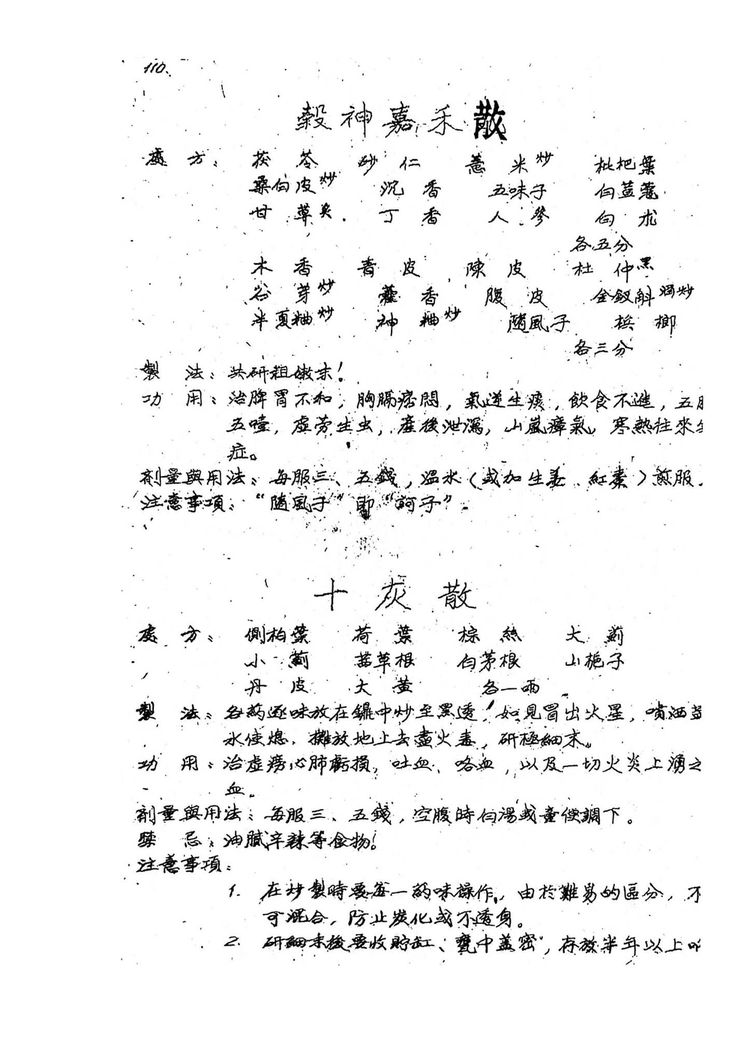 110.
穀神嘉禾散
處方：茯苓 砂仁 薏米炒 枇杷葉
桑白皮炒 沉香 五味子 白荳蔻
甘草炙 丁香 人參 白朮
各五分
木香 青皮 陳皮 杜仲黑
谷芽炒 藿香 腹皮 金釵斛 炒
半夏粬炒 神粬炒 隨風子 檳榔
各三分
製法：共研粗嫩末！
功用：治脾胃不和，胸膈痞悶，氣逆生痰，飲食不進，五
五噎，虛勞生虫，產後泄瀉，山嵐瘴氣，寒熱往來
症。
劑量與用法：每服三、五錢，溫水（或加生姜、紅棗）煎服。
注意事項：“隨風子”即“訶子”。
十灰散
處方：側柏葉 荷葉 棕絲 大薊
小薊 茜草根 白茅根 山梔子
丹皮 大黃 各一兩
製法：各葯逐味放在鑊中炒至黑透，如見冒出火星，噴洒
水使熄，攤放地上去盡火毒，研極細末。
功用：治虛癆心肺虧損，吐血、咯血，以及一切火炎上湧之
血。
劑量與用法：每服三、五錢，空腹時白湯或童便調下。
禁忌：油膩辛辣等食物！
注意事項：
1. 在炒製時要每一葯味操作，由於難易的區分，不
可混合，防止炭化或不透身。
2. 研細末後要收貯缸、甕中蓋密，存放半年以上